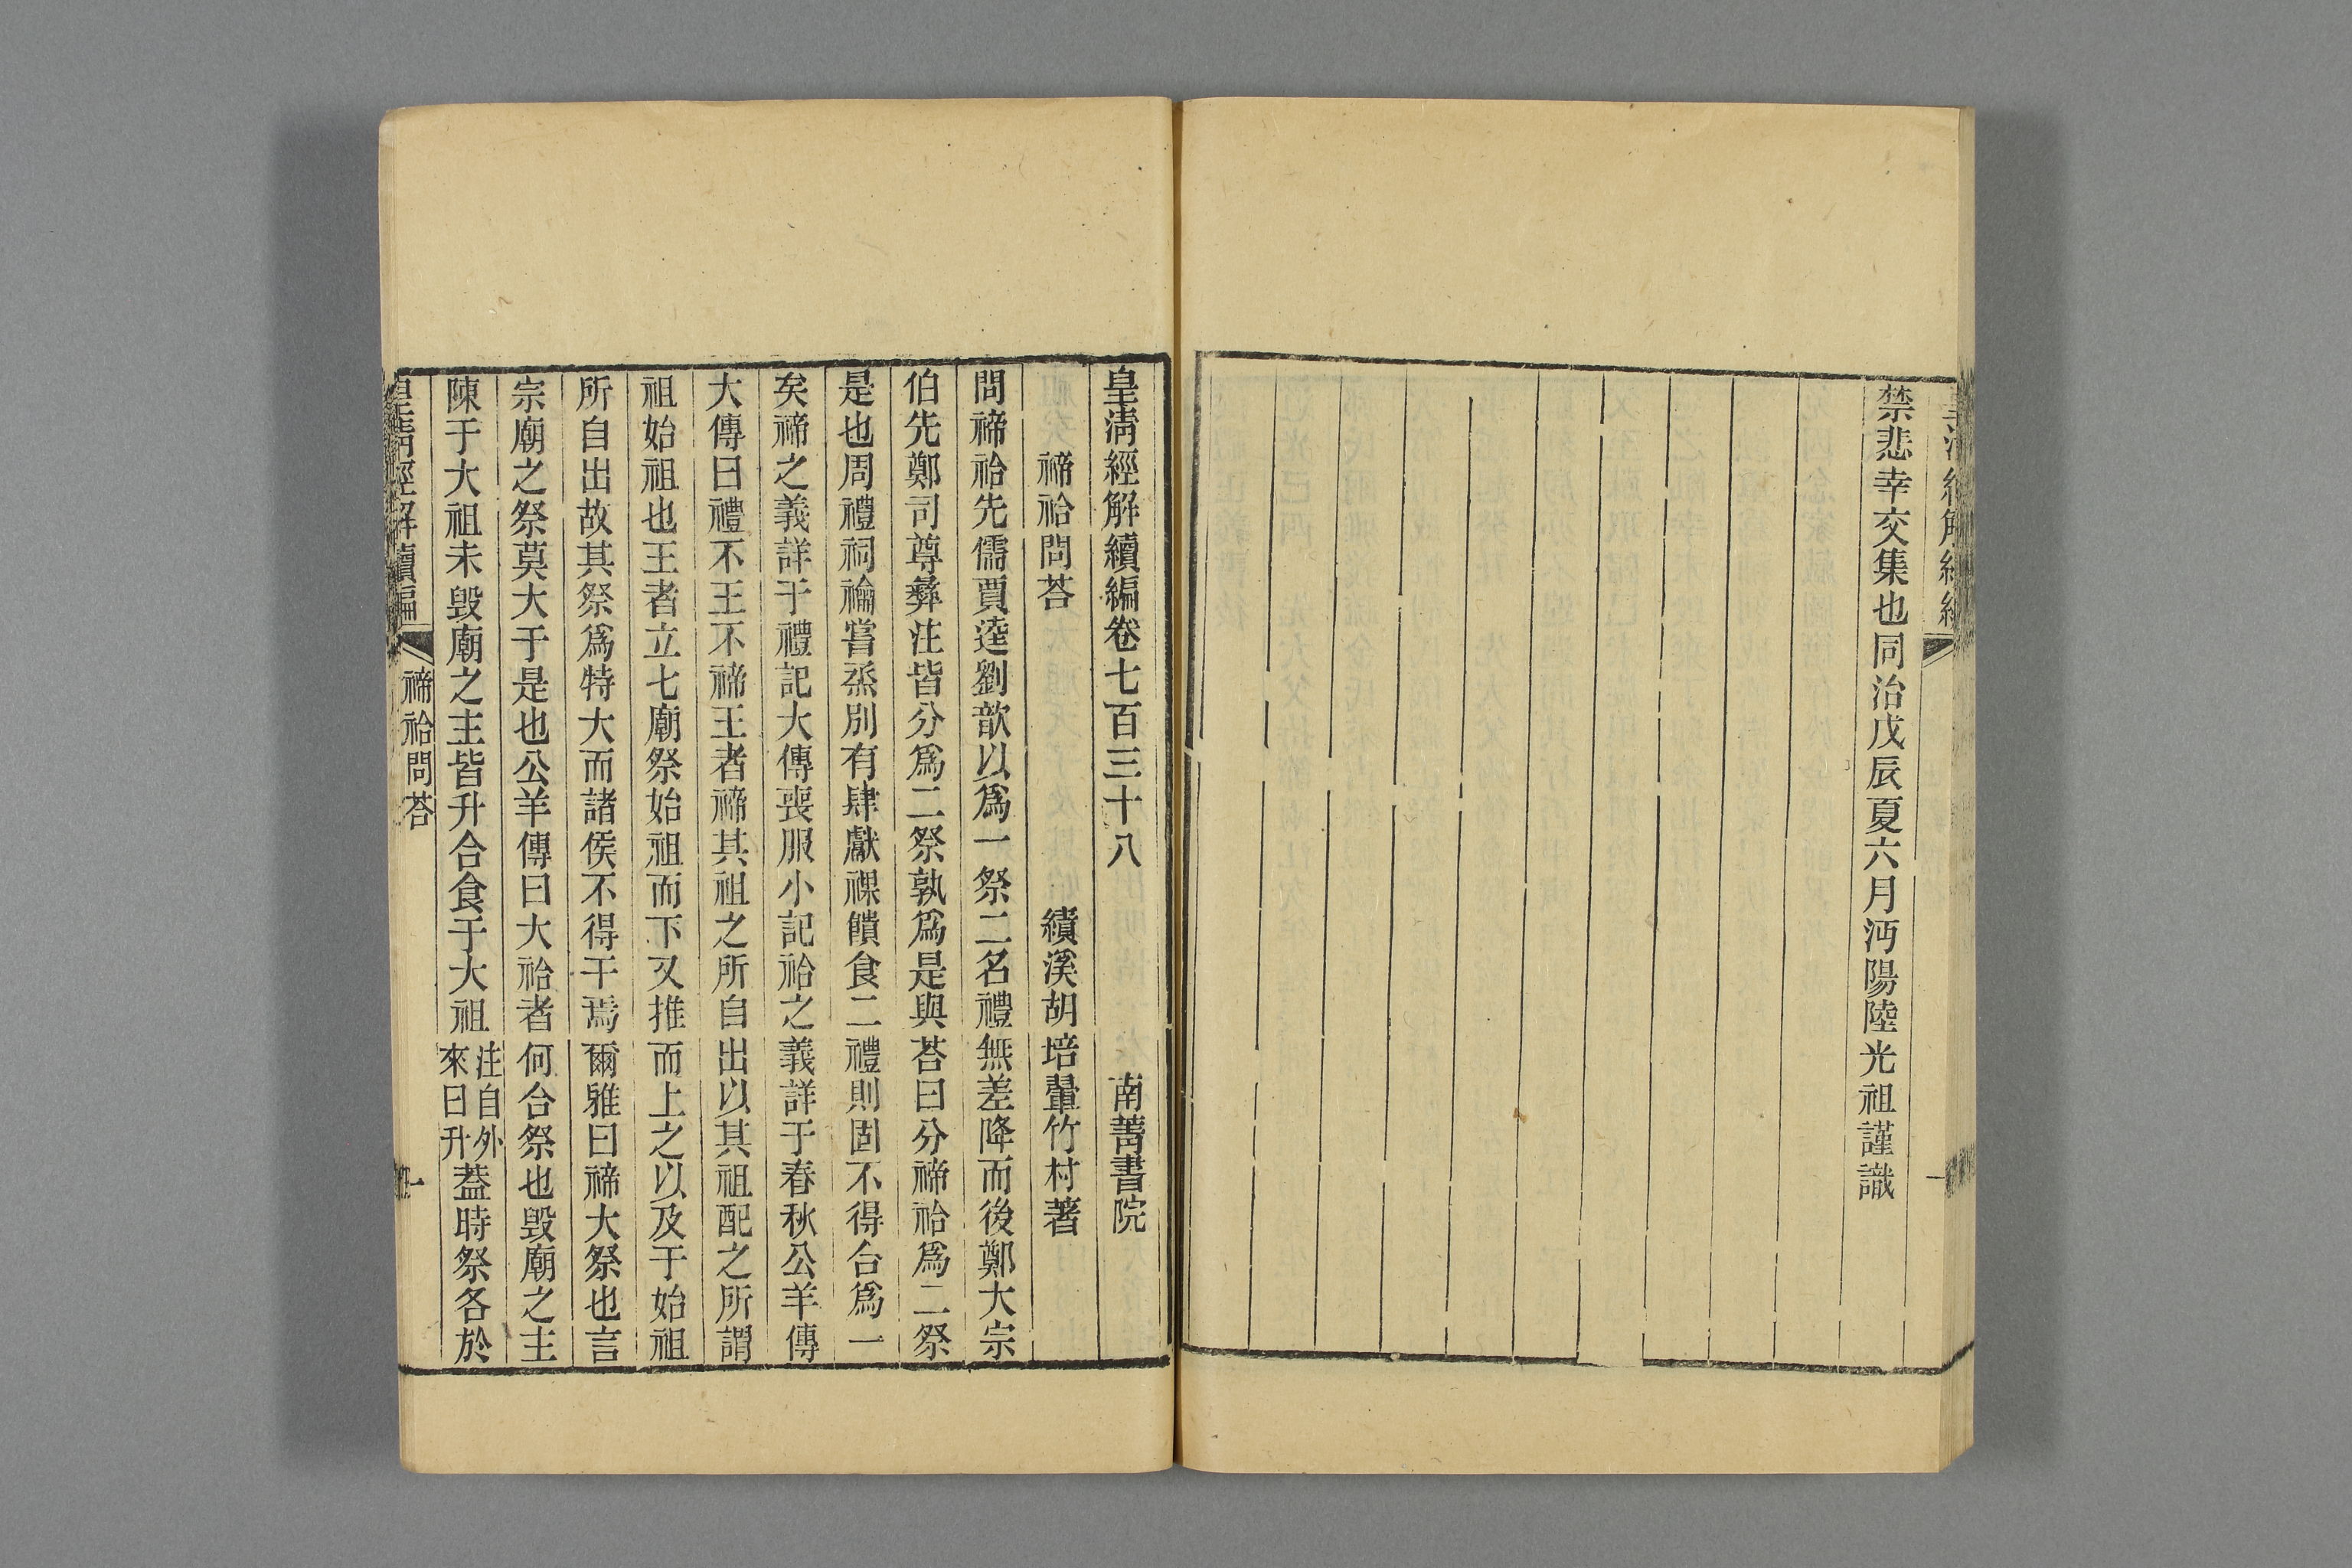 禁悲幸交集也同治戊辰夏六月沔陽陸光祖謹識
皇淸經解續編卷七百三十八 南菁書院
禘祫問荅 績溪胡培翬竹村著
問禘祫先儒賈逵劉歆以爲一祭二名禮無差降而後鄭大宗
伯先鄭司尊彝注皆分爲二祭孰爲是與荅曰分禘祫爲二祭
是也周禮祠禴嘗烝別有肆獻祼饋食二禮則固不得合爲一
矣禘之義詳于禮記大傳喪服小記祫之義詳于春秋公羊傳
大傳曰禮不王不禘王者禘其祖之所自出以其祖配之所謂
祖始祖也王者立七廟祭始祖而下又推而上之以及于始祖
所自出故其祭爲特大而諸侯不得干焉爾雅曰禘大祭也言
宗廟之祭莫大于是也公羊傳曰大祫者何合祭也毀廟之主
陳于大祖未毀廟之主皆升合食于大祖注自外來曰升蓋時祭各於
皇淸經解續編 禘祫問荅 一